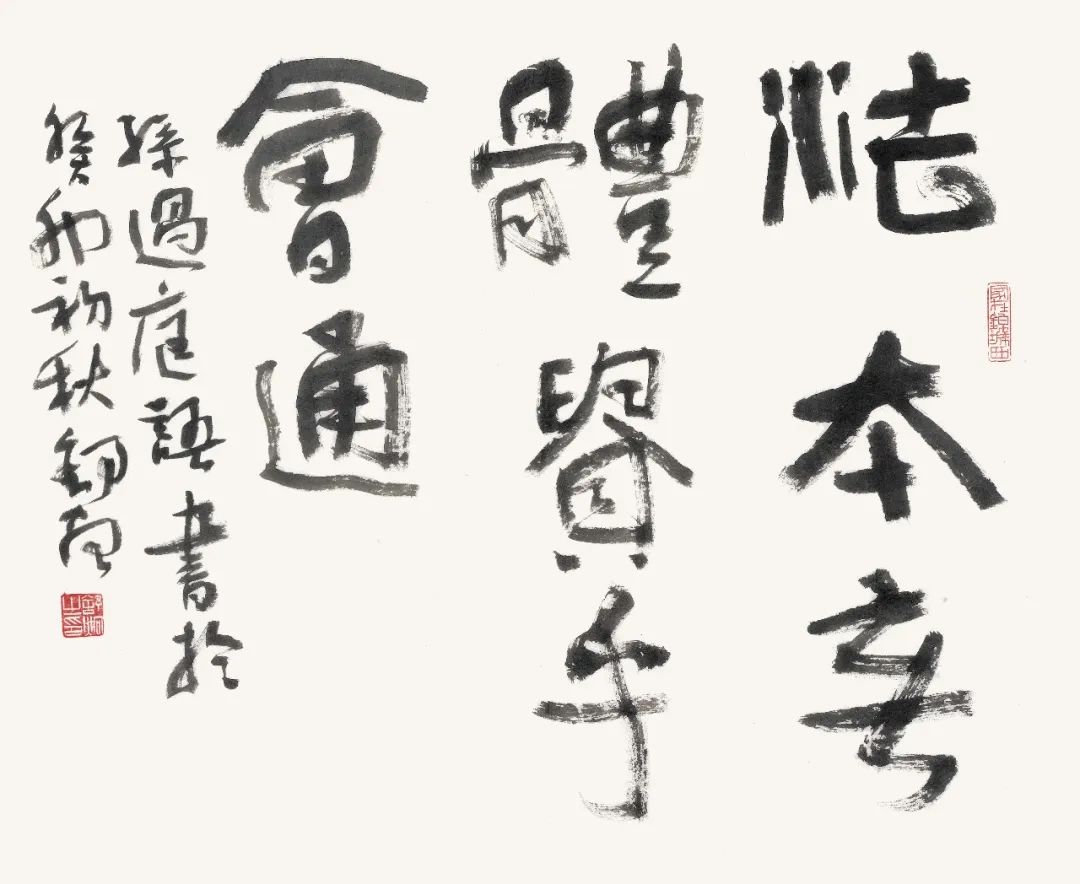 法本無
體貴乎
會通
孫過庭語書於
癸卯初秋